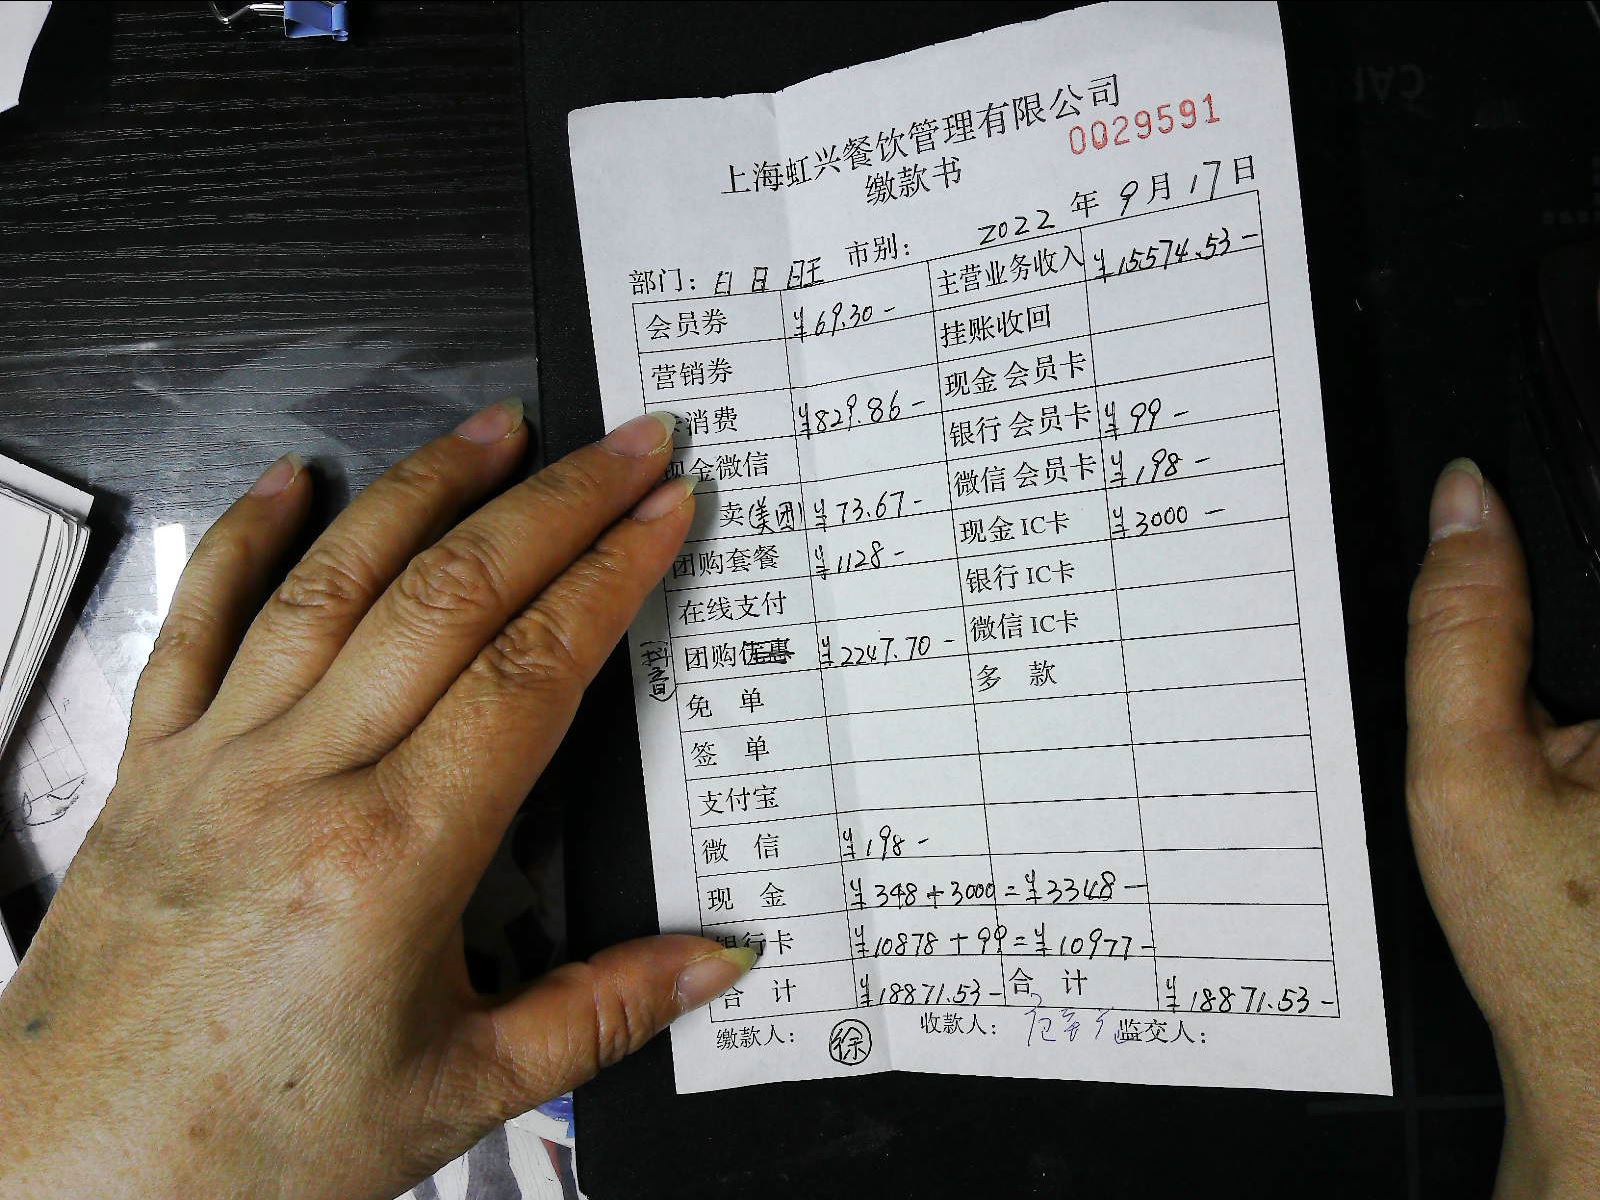 上海虹兴餐饮管理有限公司
0029591
缴款书
2022 年 9 月 17 日
部门： 日日旺 市别：
会员券 ¥69.30- 主营业务收入 ¥15574.53-
营销券 挂账收回
消费 ¥829.86- 现金 会员卡
现金微信 银行 会员卡 ¥99-
卖(美团) ¥73.67- 微信 会员卡 ¥198-
团购套餐 ¥1128- 现金 IC卡 ¥3000-
在线支付 银行 IC卡
团购 (抖音) ¥2247.70- 微信 IC卡
免 单 多 款
签 单
支付宝
微 信 ¥198-
现 金 ¥348+3000=¥3348-
银行卡 ¥10878+99=¥10977-
合 计 ¥18871.53- 合 计 ¥18871.53-
缴款人： 徐 收款人： 监交人：